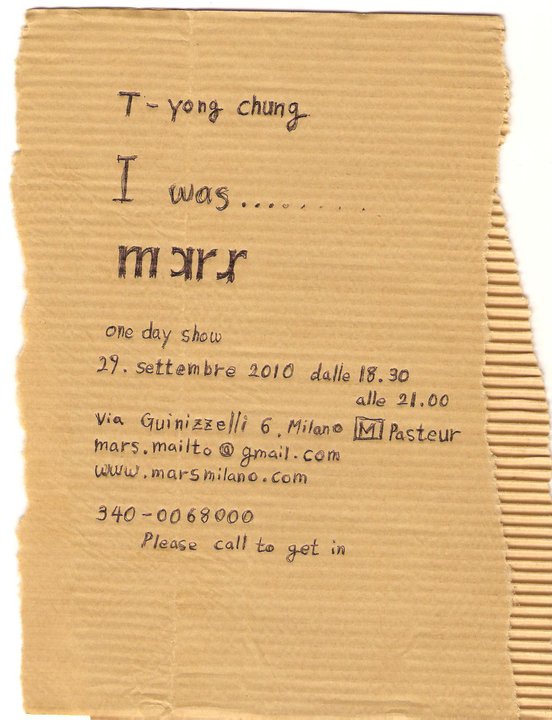 T-yong chung
I was..........
mars
one day show
29. settembre 2010 dalle 18.30
alle 21.00
Via Guinizzelli 6, Milano M Pasteur
mars.mailto@gmail.com
www.marsmilano.com
340-0068000
Please call to get in